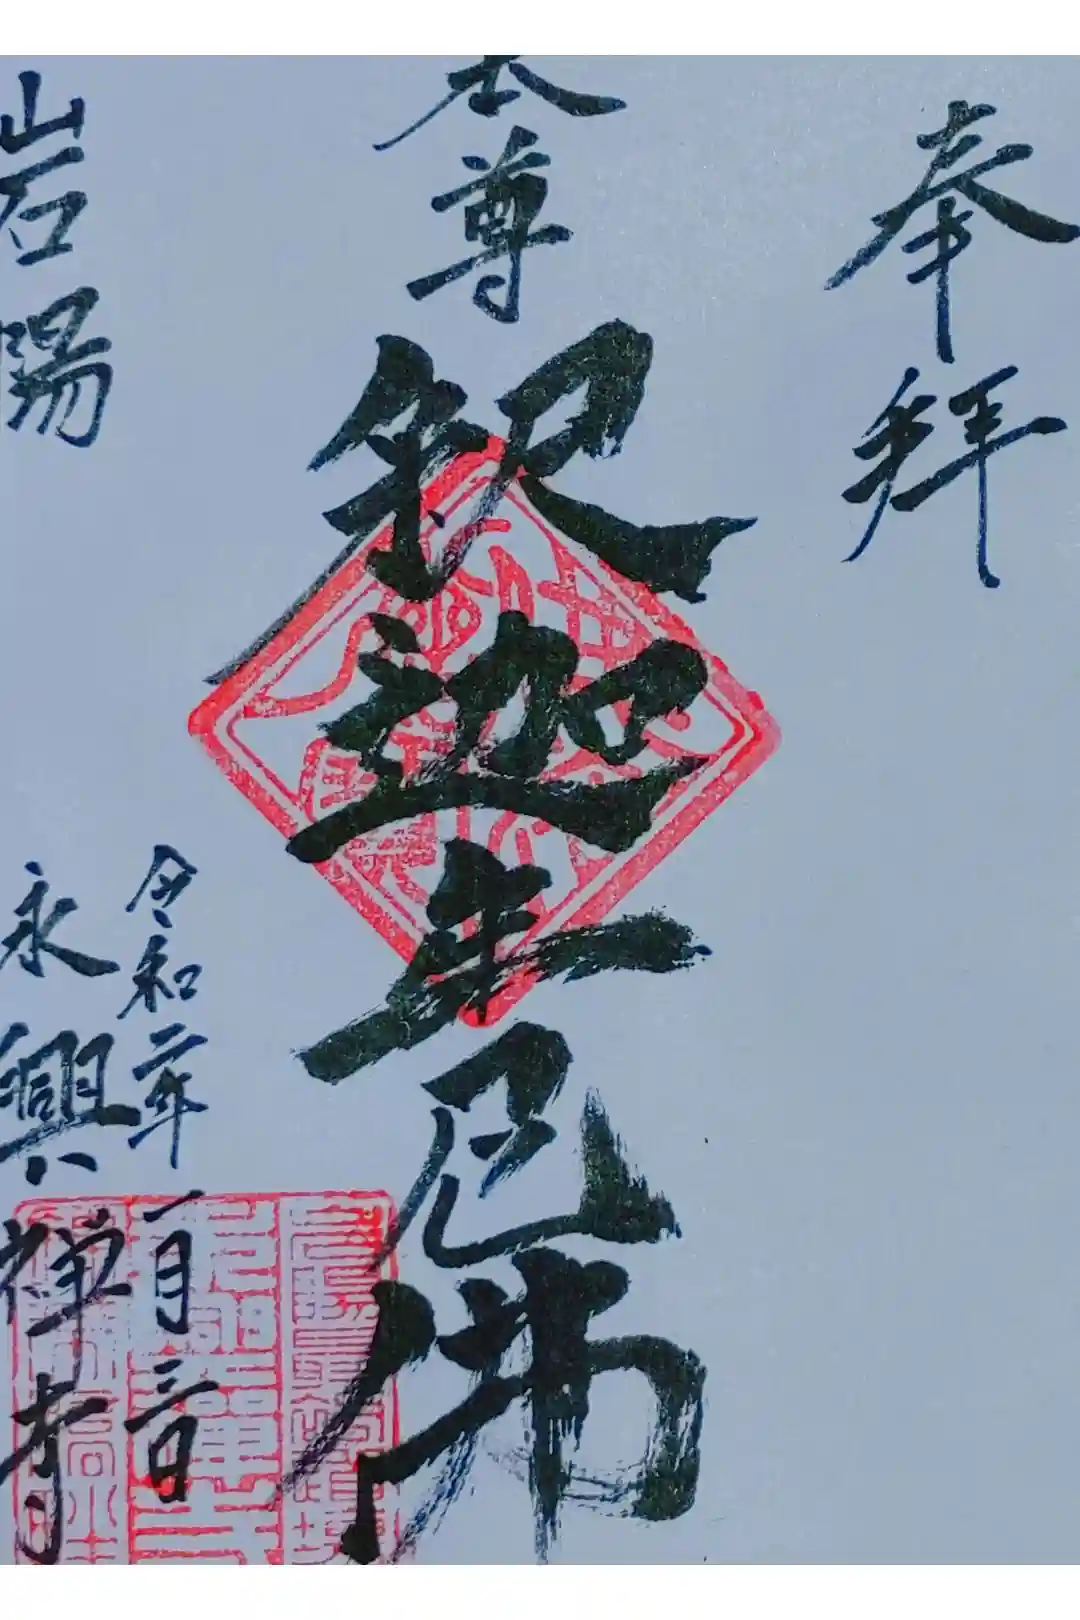 奉拝
本尊
釈迦牟尼佛
令和二年一月三日
岩陽
永興禅寺